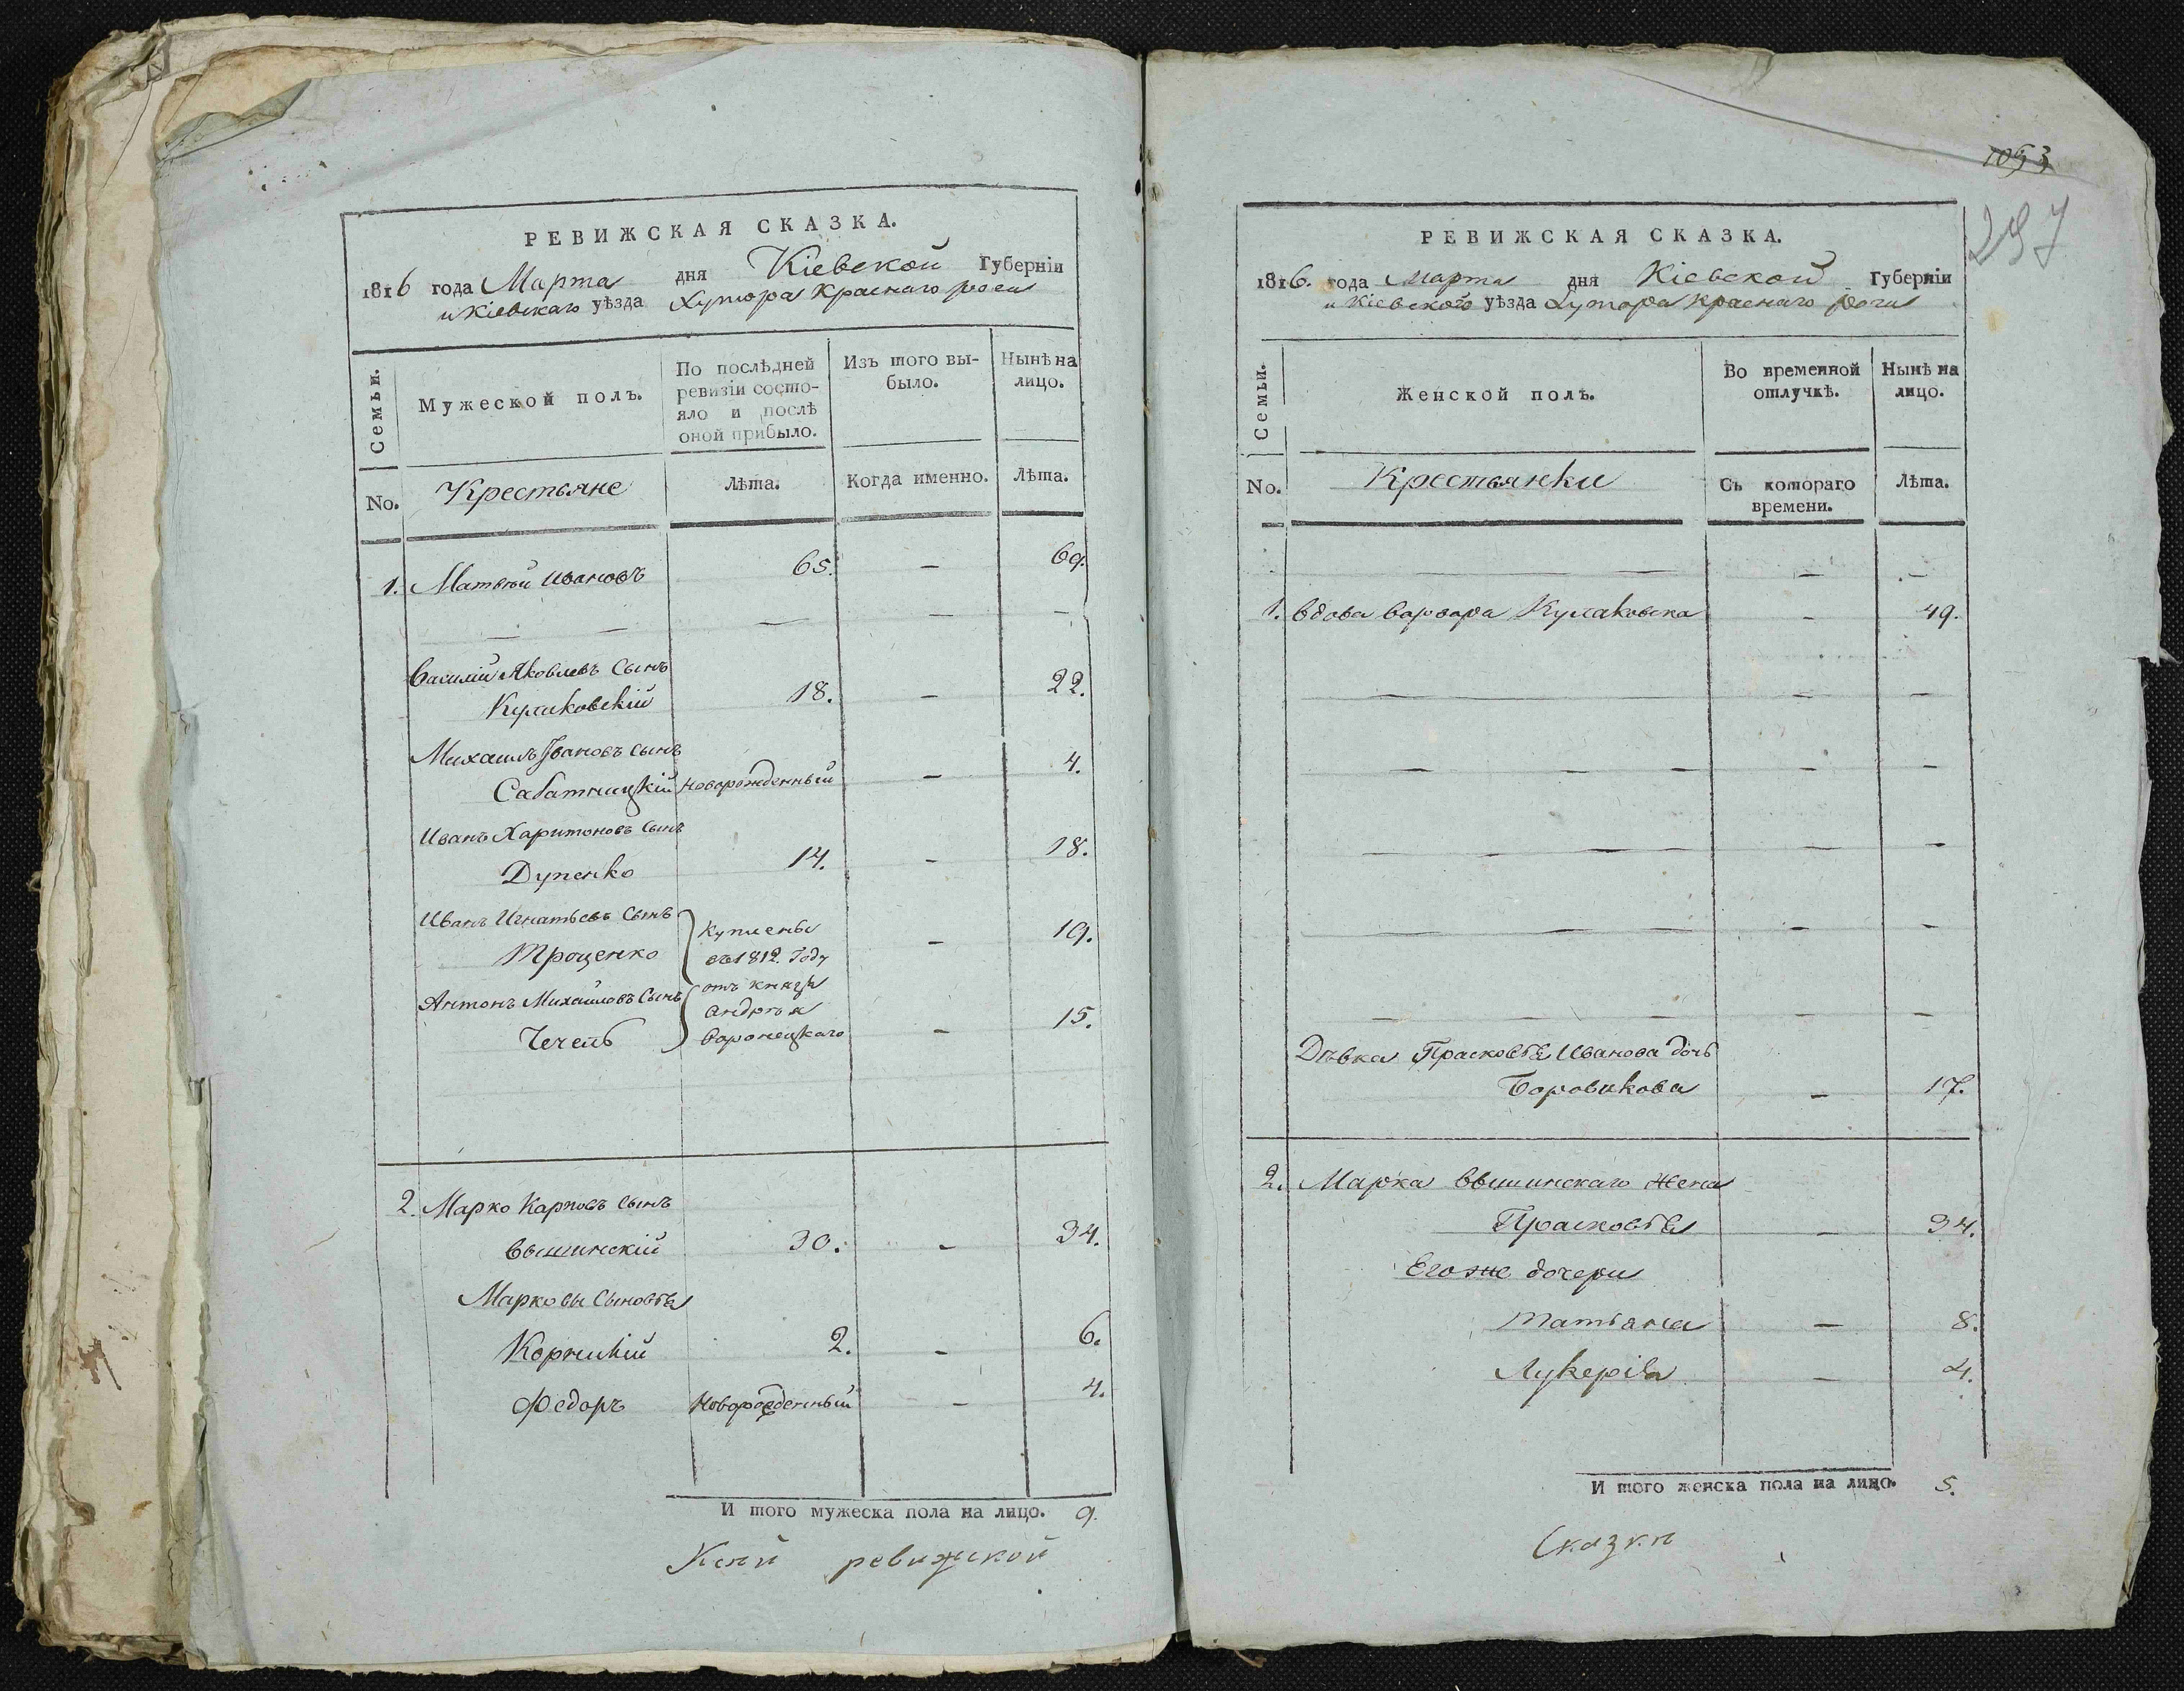 РЕВИЖСКАЯ СКАЗКА.
1816 года Марта дня Кіевской Губерніи
и Кіевскаго уѣзда Хутора Краснаго
Семьи.
Мужеской полъ.
По послѣдней ревизіи состо-
яло и послѣ
оной прибыло.
Изъ того вы-
было.
Нынѣ на
лицо.
No.
Крестьяне
Лѣта.
Когда именно.
Лѣта.
1. Матвѣй Ивановъ 65. — 69.
— — — — —
Василій Яковлевъ Сынъ
Кулаковскій 18. — 22.
Михаилъ Ивановъ Сынъ
Сабатницкій новорожденный — 4.
Иванъ Харитоновъ Сынъ
Дупенко 14. — 18.
Иванъ Игнатьевъ Сынъ
Троценко — 19.
Антонъ Михайловъ Сынъ
Чечель — 15.
куплены
въ 1812. Году
отъ князя
Андрѣя
Воронецкаго
2. Марко Карповъ Сынъ
Вышинскій 30. — 34.
Марковы Сыновья
Корнилій 2. — 6.
Федоръ Новорожденный — 4.
И того мужеска пола на лицо. 9.
Ксей ревижской
1053
297
РЕВИЖСКАЯ СКАЗКА.
1816. года марта дня Кіевской Губерніи
и Кіевского уѣзда Хутора Краснаго
Семьи.
Женской полъ.
Во временной
отлучкѣ.
Нынѣ на
лицо.
No.
Крестьянки
Съ котораго
времени.
Лѣта.
— — — —
1. Вдова Варвара Кулаковска — 49.
— — — —
— — — — —
— — — — —
— — — —
— — — —
Дѣвка Прасковья Иванова дочь
Боровикова — 17.
2. Марка Вышинскаго Жена
Прасковья — 34.
Егоже дочери
Татьяна — 8.
Лукерія — 4.
И того женска пола на лицо. 5.
Сказки